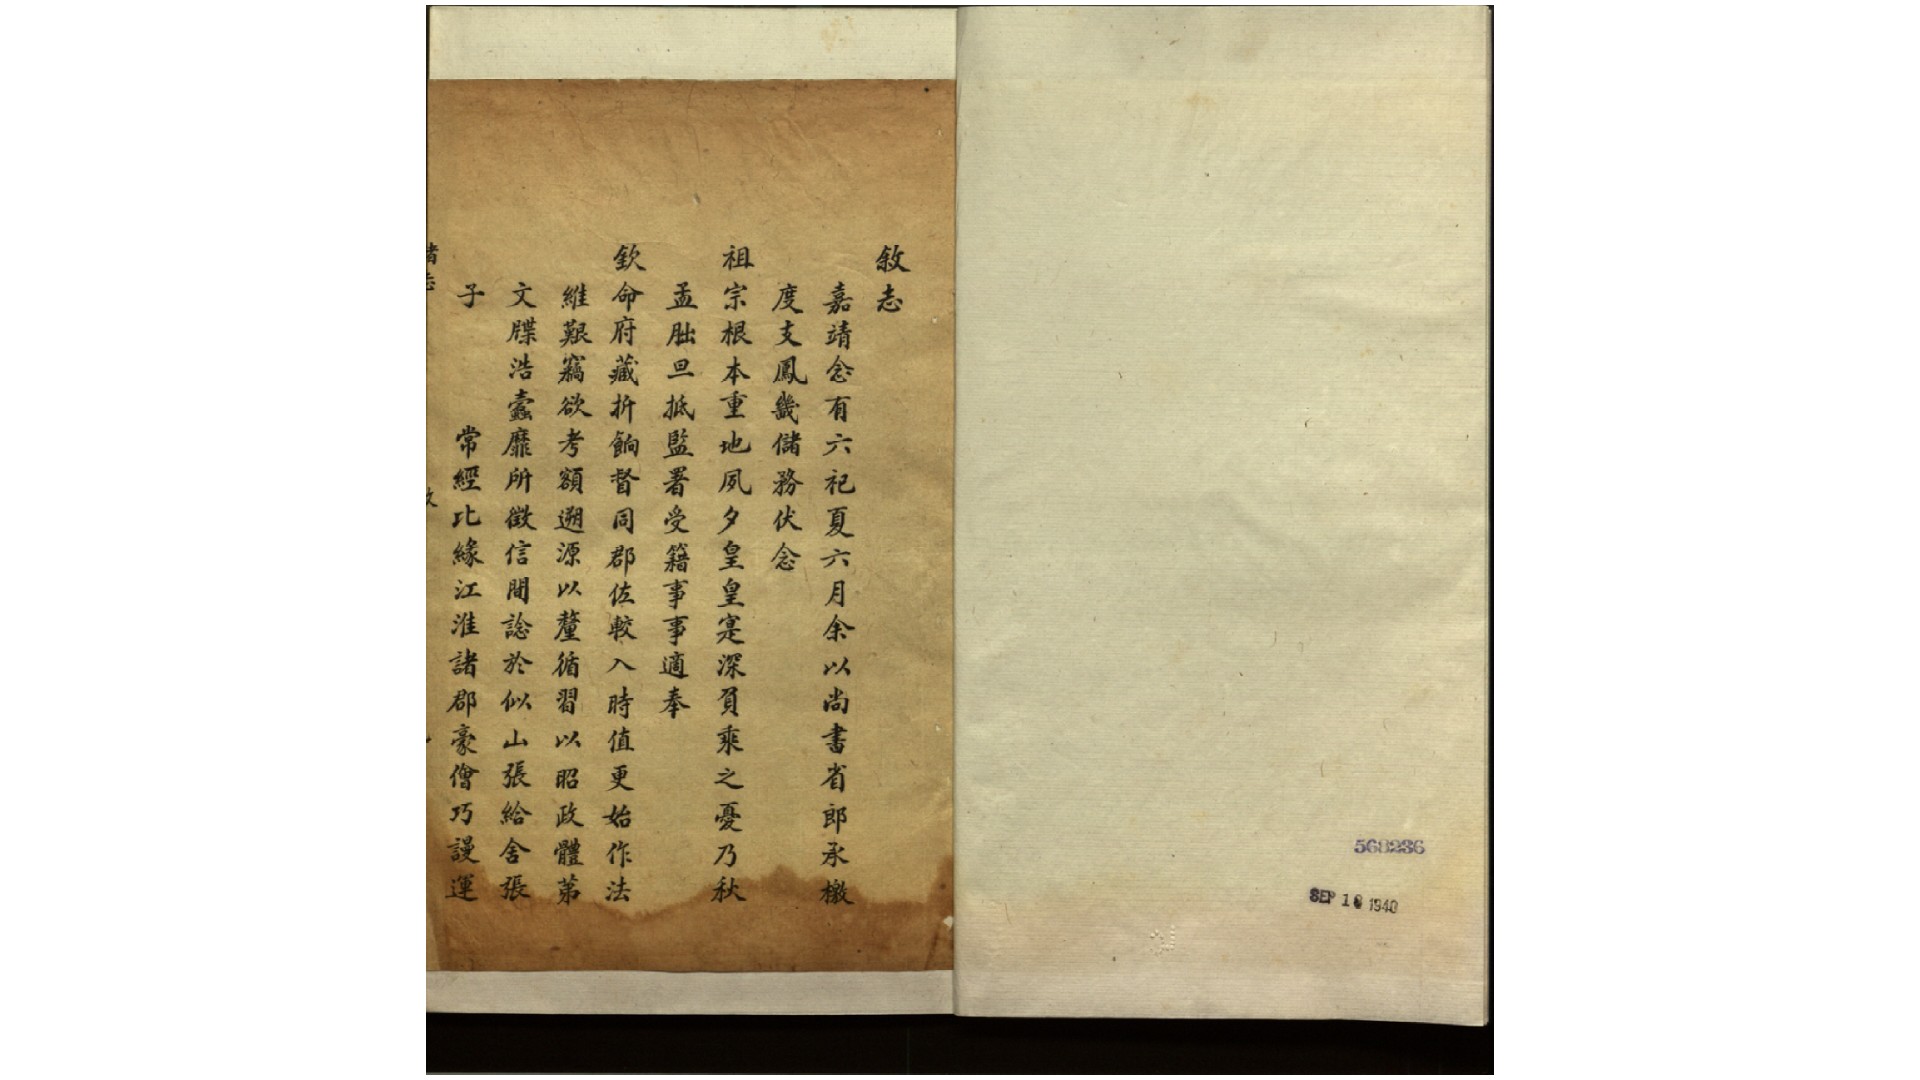 敘志
嘉靖念有六祀夏六月余以尚書省郎承檄
度支鳳畿儲務伏念
祖宗根本重地夙夕皇皇寔深負乘之憂乃秋
孟朏旦抵監署受籍事事適奉
欽命府藏折餉督同郡佐較入時值更始作法
維艱竊欲考額遡源以釐循習以昭政體第
文牒浩蠹靡所徵信間諗於似山張給舍張
子 常經比緣江淮諸郡豪儈巧謾運
568236
SEP 18 1940